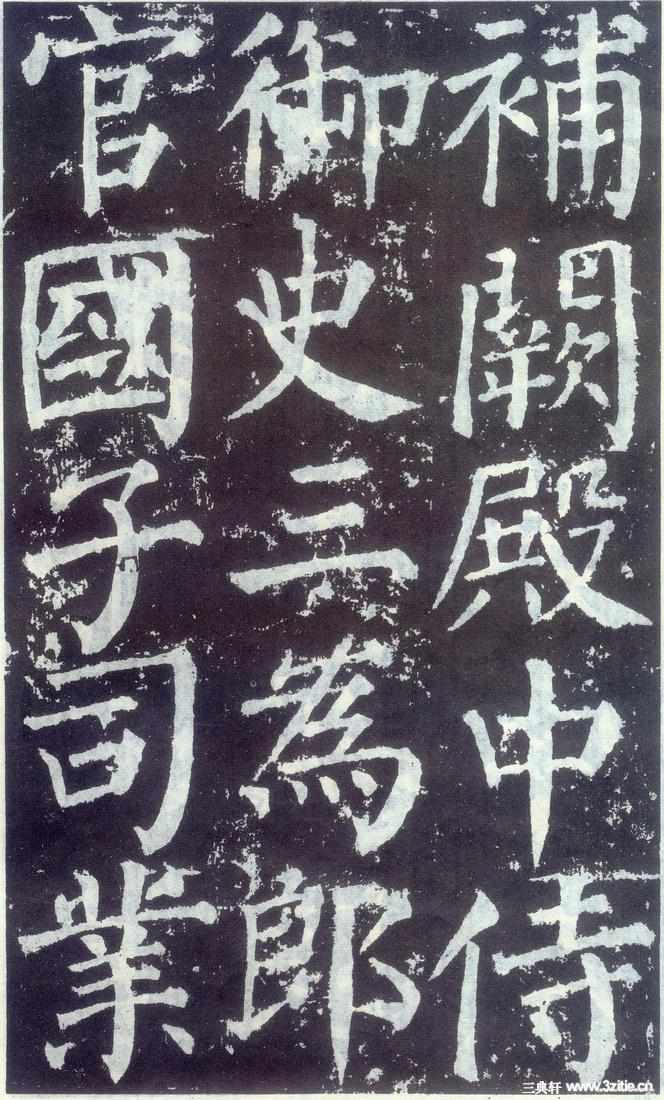 補闕殿中侍
御史三為郎
官國子司業
三典轩 www.3zitie.cn